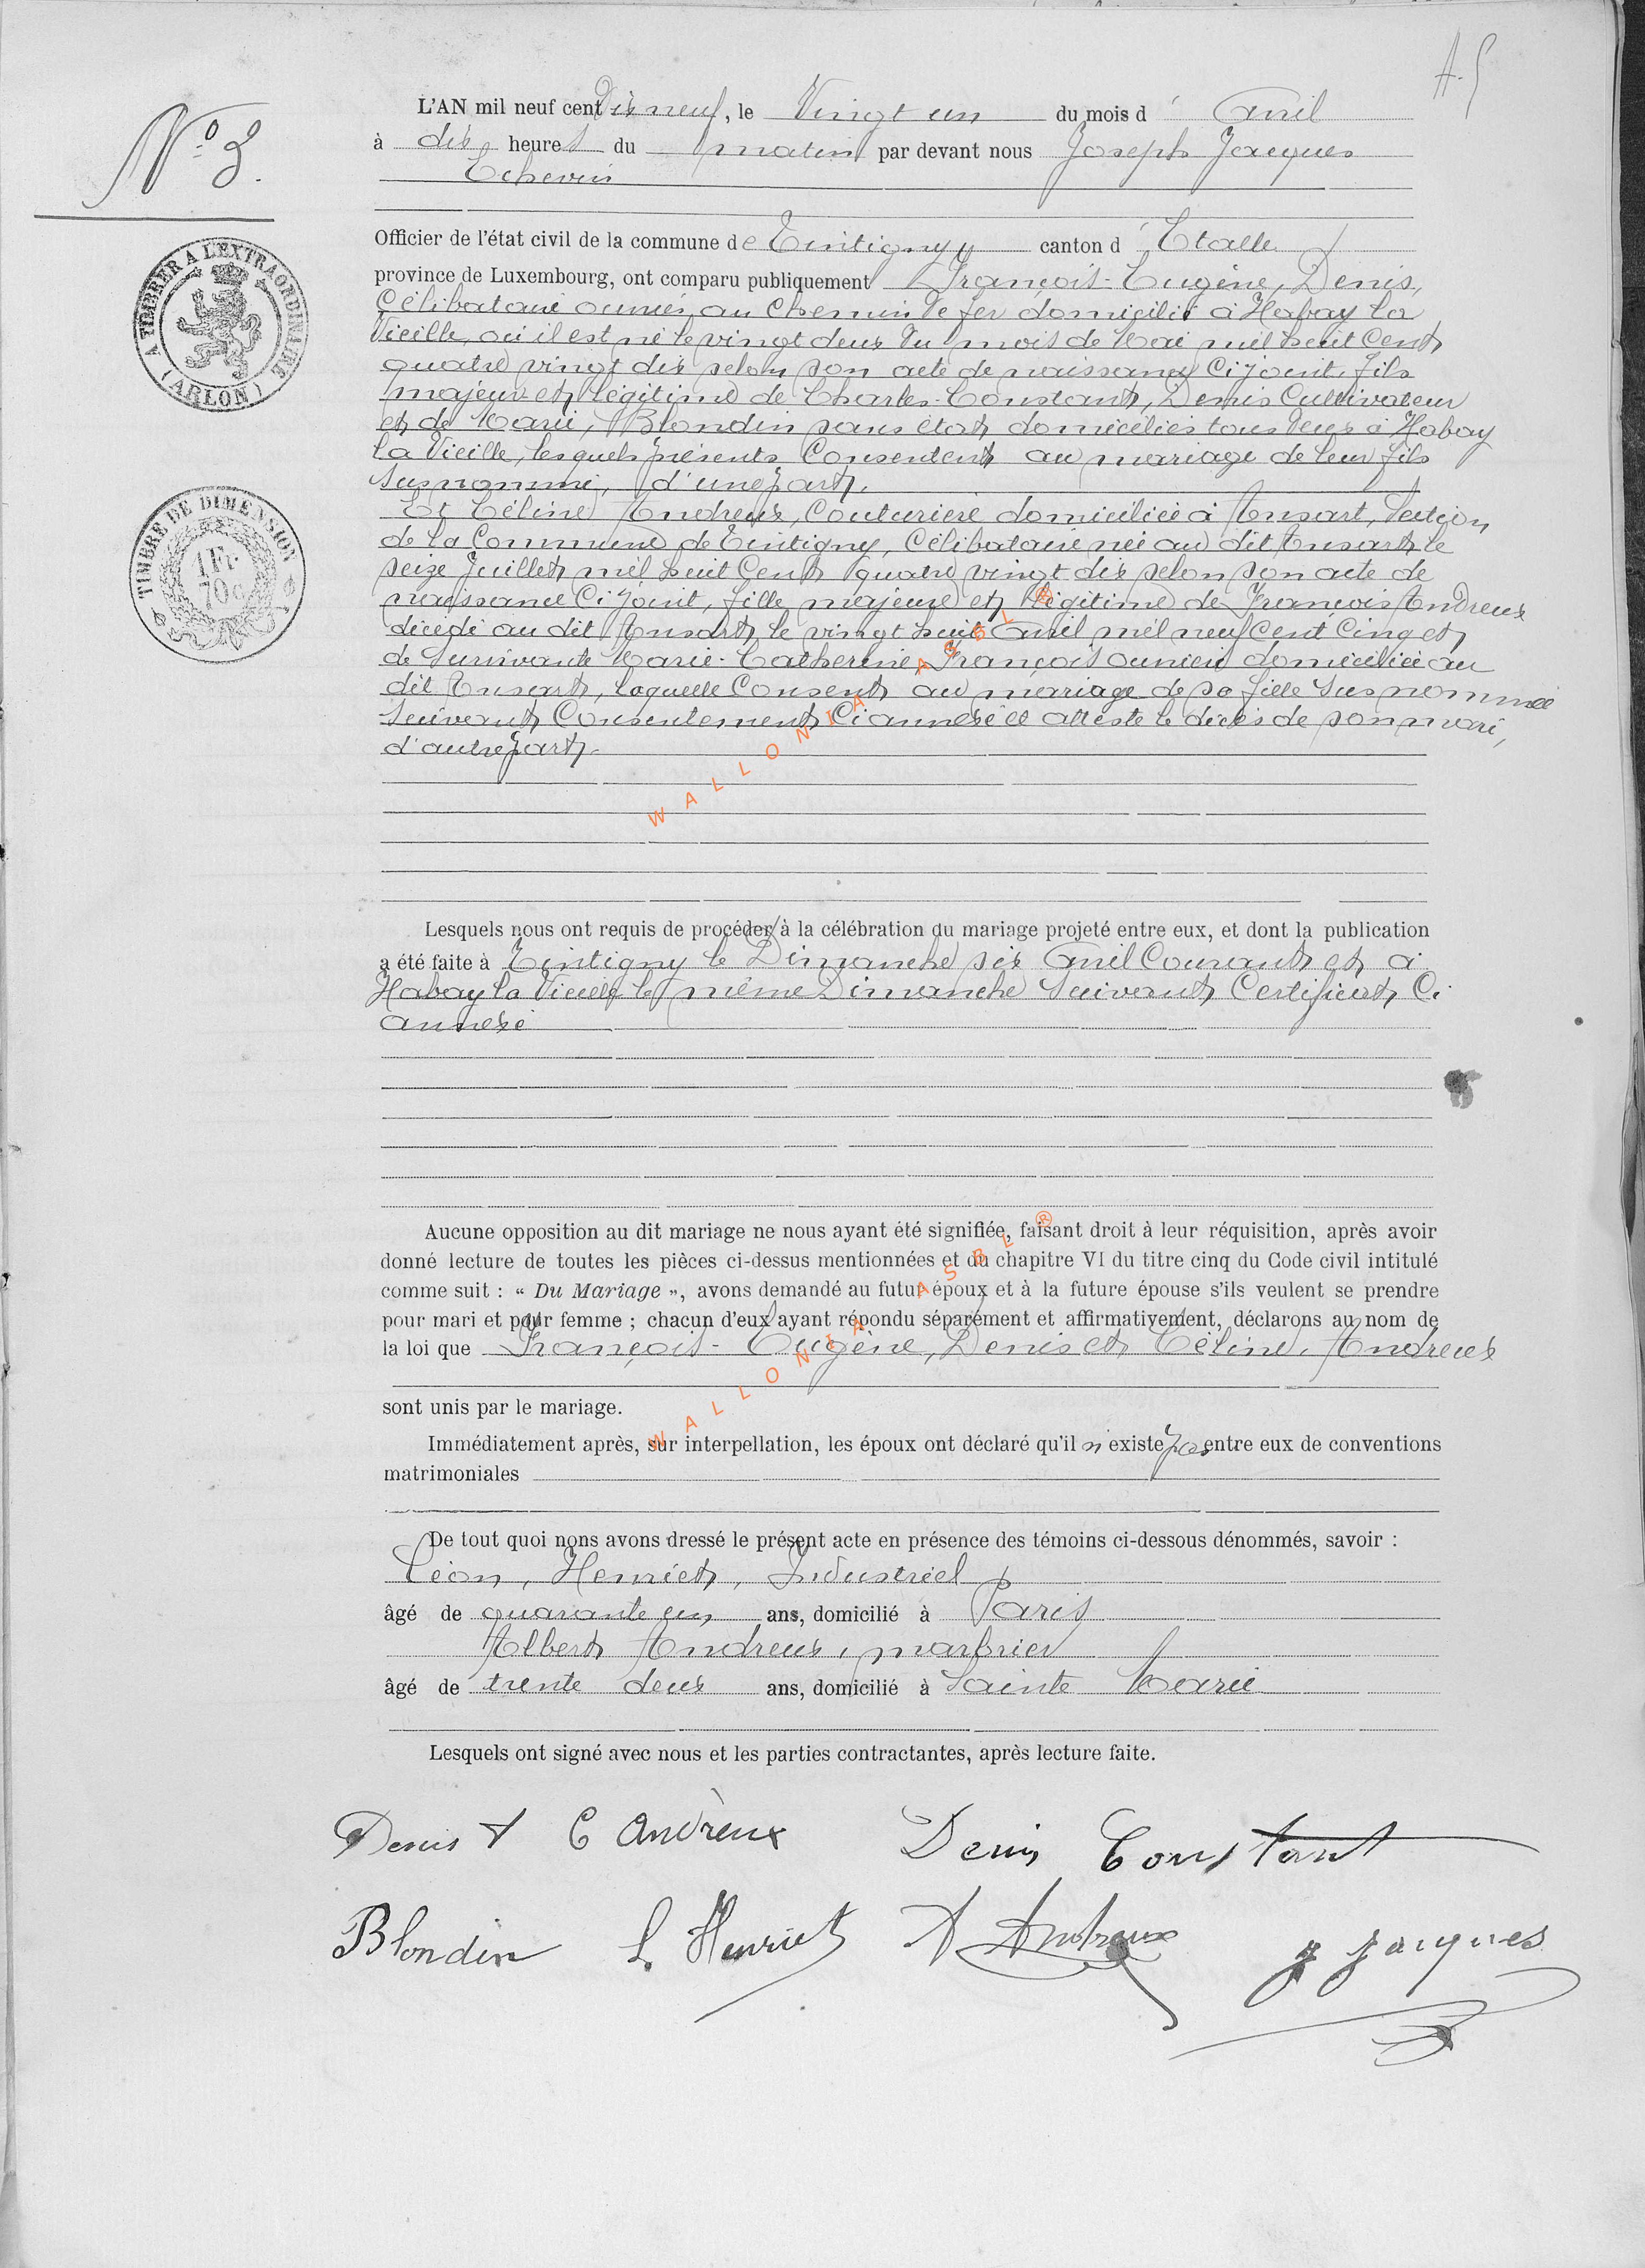 A. J
N° 3.
L'AN mil neuf cent Dix neuf, le Vingt un du mois d' Avril
à dix heures du matin par devant nous Joseph Jacques
Echevin
Officier de l'état civil de la commune de Tintigny canton d' Etalle
province de Luxembourg, ont comparu publiquement François-Eugène, Denis,
Célibataire ouvrier au Chemin de fer domicilié à Habay la
Vieille, où il est né le vingt deux du mois de Mai mil huit Cent
quatre vingt dix selon son acte de naissance Ci joint, fils
majeur et légitime de Charles-Constant, Denis Cultivateur
et de Marie, Blondin sans état domiciliés tous deux à Habay
la Vieille, lesquels présents Consentent au mariage de leur fils
susnommé, d'une part.
Et Céline Andreux, Couturière domiciliée à Ansart, Section
de la Commune de Tintigny, Célibataire née au dit Ansart le
seize Juillet mil huit Cent quatre vingt dix selon son acte de
naissance Ci joint, fille majeure et légitime de François Andreux
décédé au dit Ansart le vingt huit Avril mil neuf Cent Cinq et
de survivante Marie-Catherine, François ouvrière domiciliée au
dit Ansart, laquelle Consent au mariage de sa fille susnommée
suivant Consentement Ci annexé et atteste le décès de son mari,
d'autre part.
Lesquels nous ont requis de procéder à la célébration du mariage projeté entre eux, et dont la publication
a été faite à Tintigny le Dimanche six Avril Courant et à
Habay la Vieille le même Dimanche suivant Certificat Ci
annexé
Aucune opposition au dit mariage ne nous ayant été signifiée, faisant droit à leur réquisition, après avoir
donné lecture de toutes les pièces ci-dessus mentionnées et du chapitre VI du titre cinq du Code civil intitulé
comme suit : « Du Mariage », avons demandé au futur époux et à la future épouse s'ils veulent se prendre
pour mari et pour femme ; chacun d'eux ayant répondu séparément et affirmativement, déclarons au nom de
la loi que François-Eugène, Denis et Céline, Andreux
sont unis par le mariage.
Immédiatement après, sur interpellation, les époux ont déclaré qu'il n'existe pas entre eux de conventions
matrimoniales
De tout quoi nons avons dressé le présent acte en présence des témoins ci-dessous dénommés, savoir :
Léon, Henriet, Industriel
âgé de quarante un ans, domicilié à Paris
Albert Andreux, marbrier
âgé de trente deux ans, domicilié à Sainte Marie
Lesquels ont signé avec nous et les parties contractantes, après lecture faite.
Denis C Andreux Denis Constant
Blondin L. Henriet A Andreux J Jacques
A TIMBRER A L'EXTRAORDINAIRE
(ARLON)
TIMBRE DE DIMENSION
1 Fr.
70 c.
WALLONIA ASBL ®
WALLONIA ASBL ®